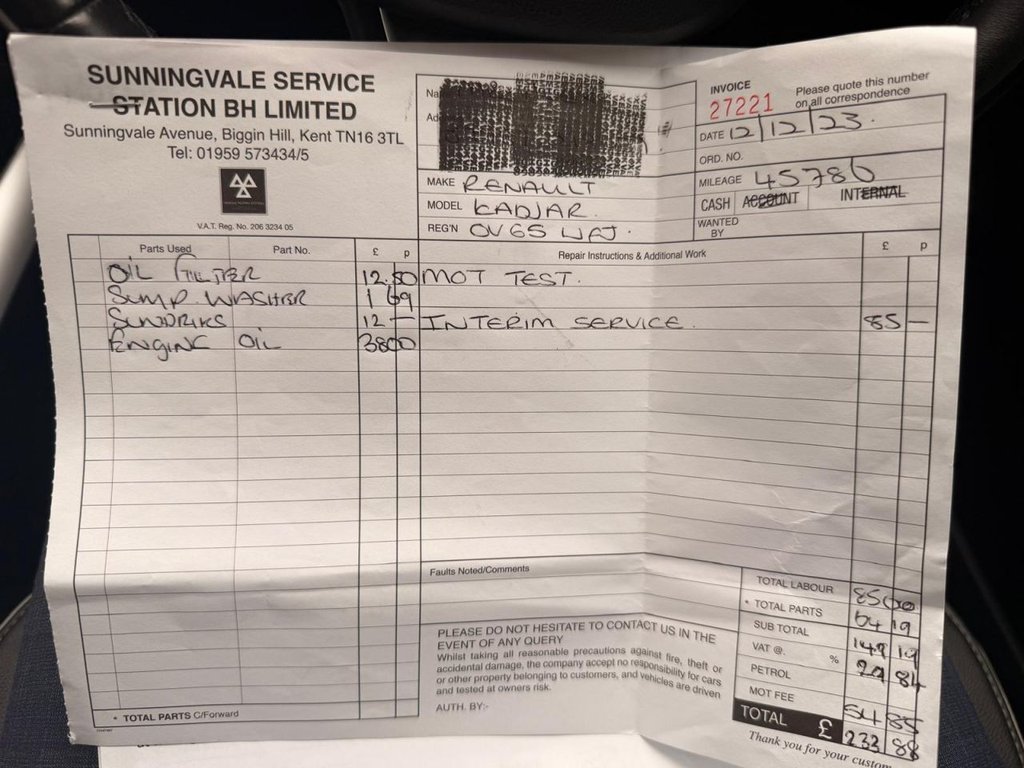 SUNNINGVALE SERVICE
STATION BH LIMITED
Sunningvale Avenue, Biggin Hill, Kent TN16 3TL
Tel: 01959 573434/5
V.A.T. Reg. No. 206 3234 05
INVOICE
27221
Please quote this number
on all correspondence
DATE 12/12/23.
ORD. NO.
MAKE RENAULT
MILEAGE 45780
MODEL KADJAR.
CASH ACCOUNT INTERNAL
REG'N OV65 UAJ.
WANTED
BY
Parts Used Part No. £ p
Repair Instructions & Additional Work £ p
OIL FILTER 12.50 MOT TEST.
SUMP WASHER 1 69
SUNDRIES 12 — INTERIM SERVICE. 85 —
ENGINE OIL 3800
Faults Noted/Comments
TOTAL LABOUR 85 00
* TOTAL PARTS 64 19
SUB TOTAL 149 19
VAT @. % 29 84
PETROL
MOT FEE 54 85
TOTAL £ 233 88
PLEASE DO NOT HESITATE TO CONTACT US IN THE
EVENT OF ANY QUERY
Whilst taking all reasonable precautions against fire, theft or
accidental damage, the company accept no responsibility for cars
or other property belonging to customers, and vehicles are driven
and tested at owners risk.
AUTH. BY:-
* TOTAL PARTS C/Forward
Thank you for your custom